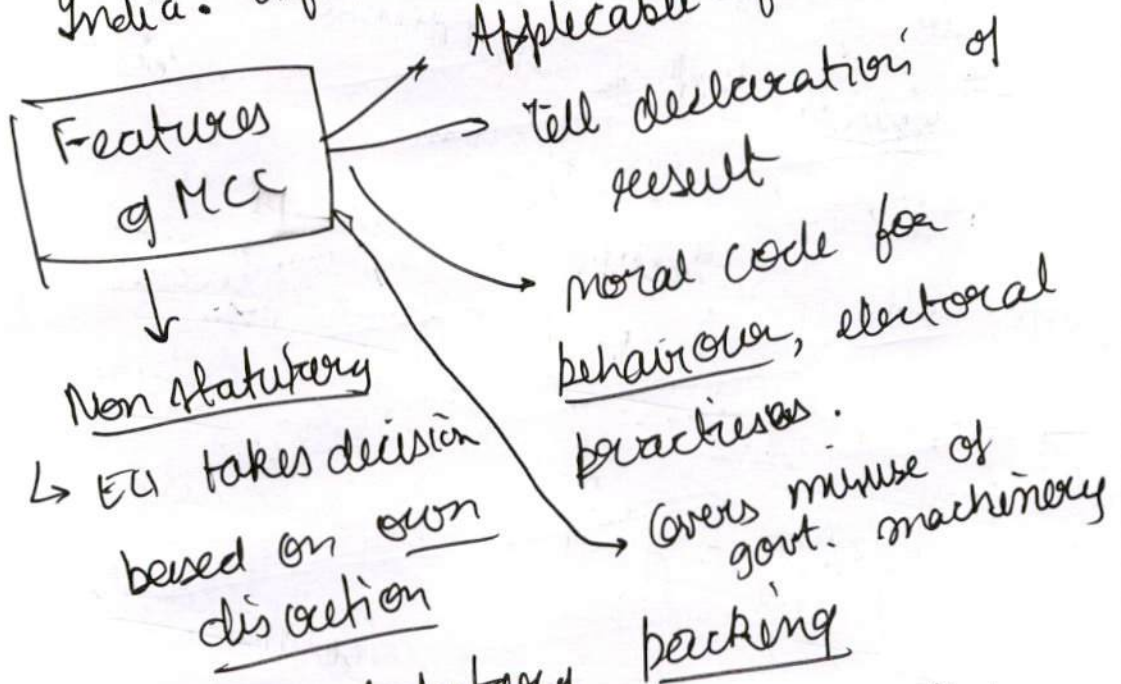 India.
Applicable
Features
of MCC
till declaration of
result
moral code for
behaiviour, electoral
practises.
Covers misuse of
govt. machinery
Non statutary
↳ ECI takes decision
based on own
discretion
backing